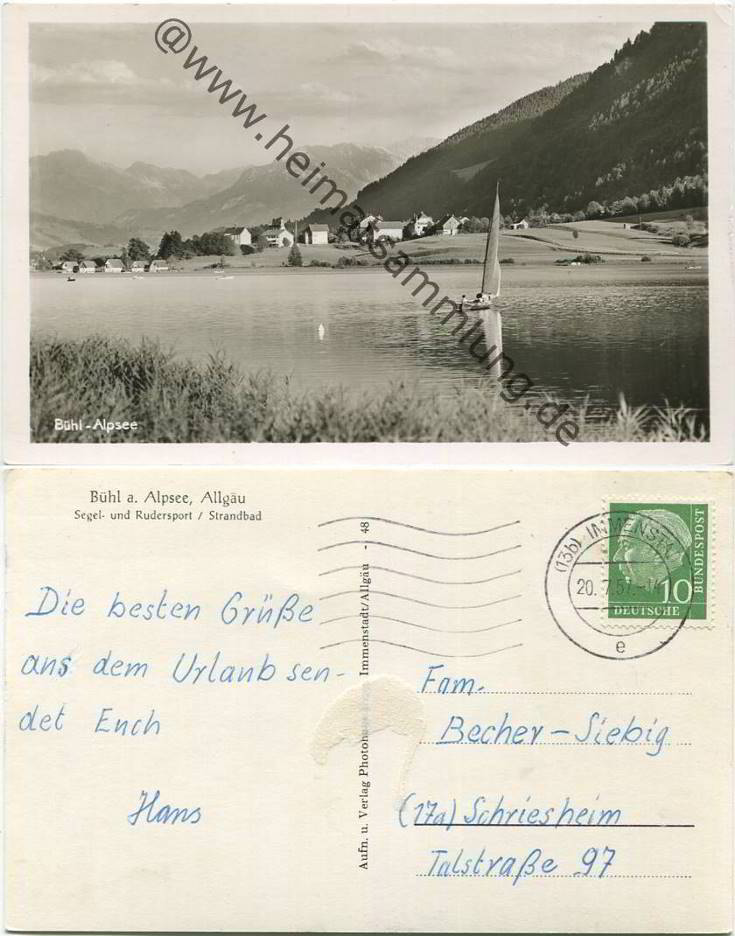 @www.heimatsammlung.de
Bühl-Alpsee
Bühl a. Alpsee, Allgäu
Segel- und Rudersport / Strandbad
Die besten Grüße
aus dem Urlaub sen-
det Euch
Hans
Aufn. u. Verlag Photohaus Immenstadt/Allgäu - 48
(13b) IMMENST
20. 7. 57.
e
10
DEUTSCHE
BUNDESPOST
Fam.
Becher-Siebig
(17a) Schriesheim
Talstraße 97